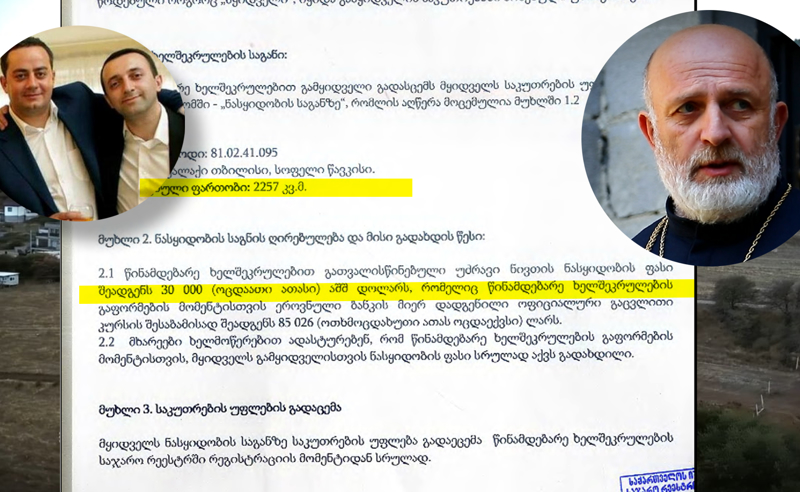 ხელშეკრულების საგანი:
ხელშეკრულებით გამყიდველი გადასცემს მყიდველს საკუთრების
„ნასყიდობის საგანზე“, რომლის აღწერა მოცემულია მუხლში 1.2
81.02.41.095
თბილისი, სოფელი წავკისი.
ფართობი: 2257 კვ.მ.
მუხლი 2. ნასყიდობის საგნის ღირებულება და მისი გადახდის წესი:
2.1 წინამდებარე ხელშეკრულებით გათვალისწინებული უძრავი ნივთის ნასყიდობის ფასი
შეადგენს 30 000 (ოცდაათი ათასი) აშშ დოლარს, რომელიც წინამდებარე ხელშეკრულების
გაფორმების მომენტისთვის ეროვნული ბანკის მიერ დადგენილი ოფიციალური გაცვლითი
კურსის შესაბამისად შეადგენს 85 026 (ოთხმოცდახუთი ათას ოცდაექვსი) ლარს.
2.2 მხარეები ხელმოწერებით ადასტურებენ, რომ წინამდებარე ხელშეკრულების გაფორმების
მომენტისთვის, მყიდველს გამყიდველისთვის ნასყიდობის ფასი სრულად აქვს გადახდილი.
მუხლი 3. საკუთრების უფლების გადაცემა
მყიდველს ნასყიდობის საგანზე საკუთრების უფლება გადაეცემა წინამდებარე ხელშეკრულების
საჯარო რეესტრში რეგისტრაციის მომენტიდან სრულად.
საქართველოს
საჯარო